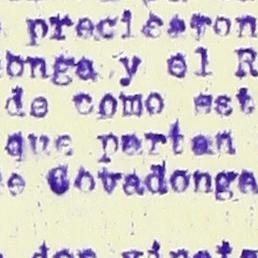 precisaron
onga y el R
de como est
que partan
e Covadonga